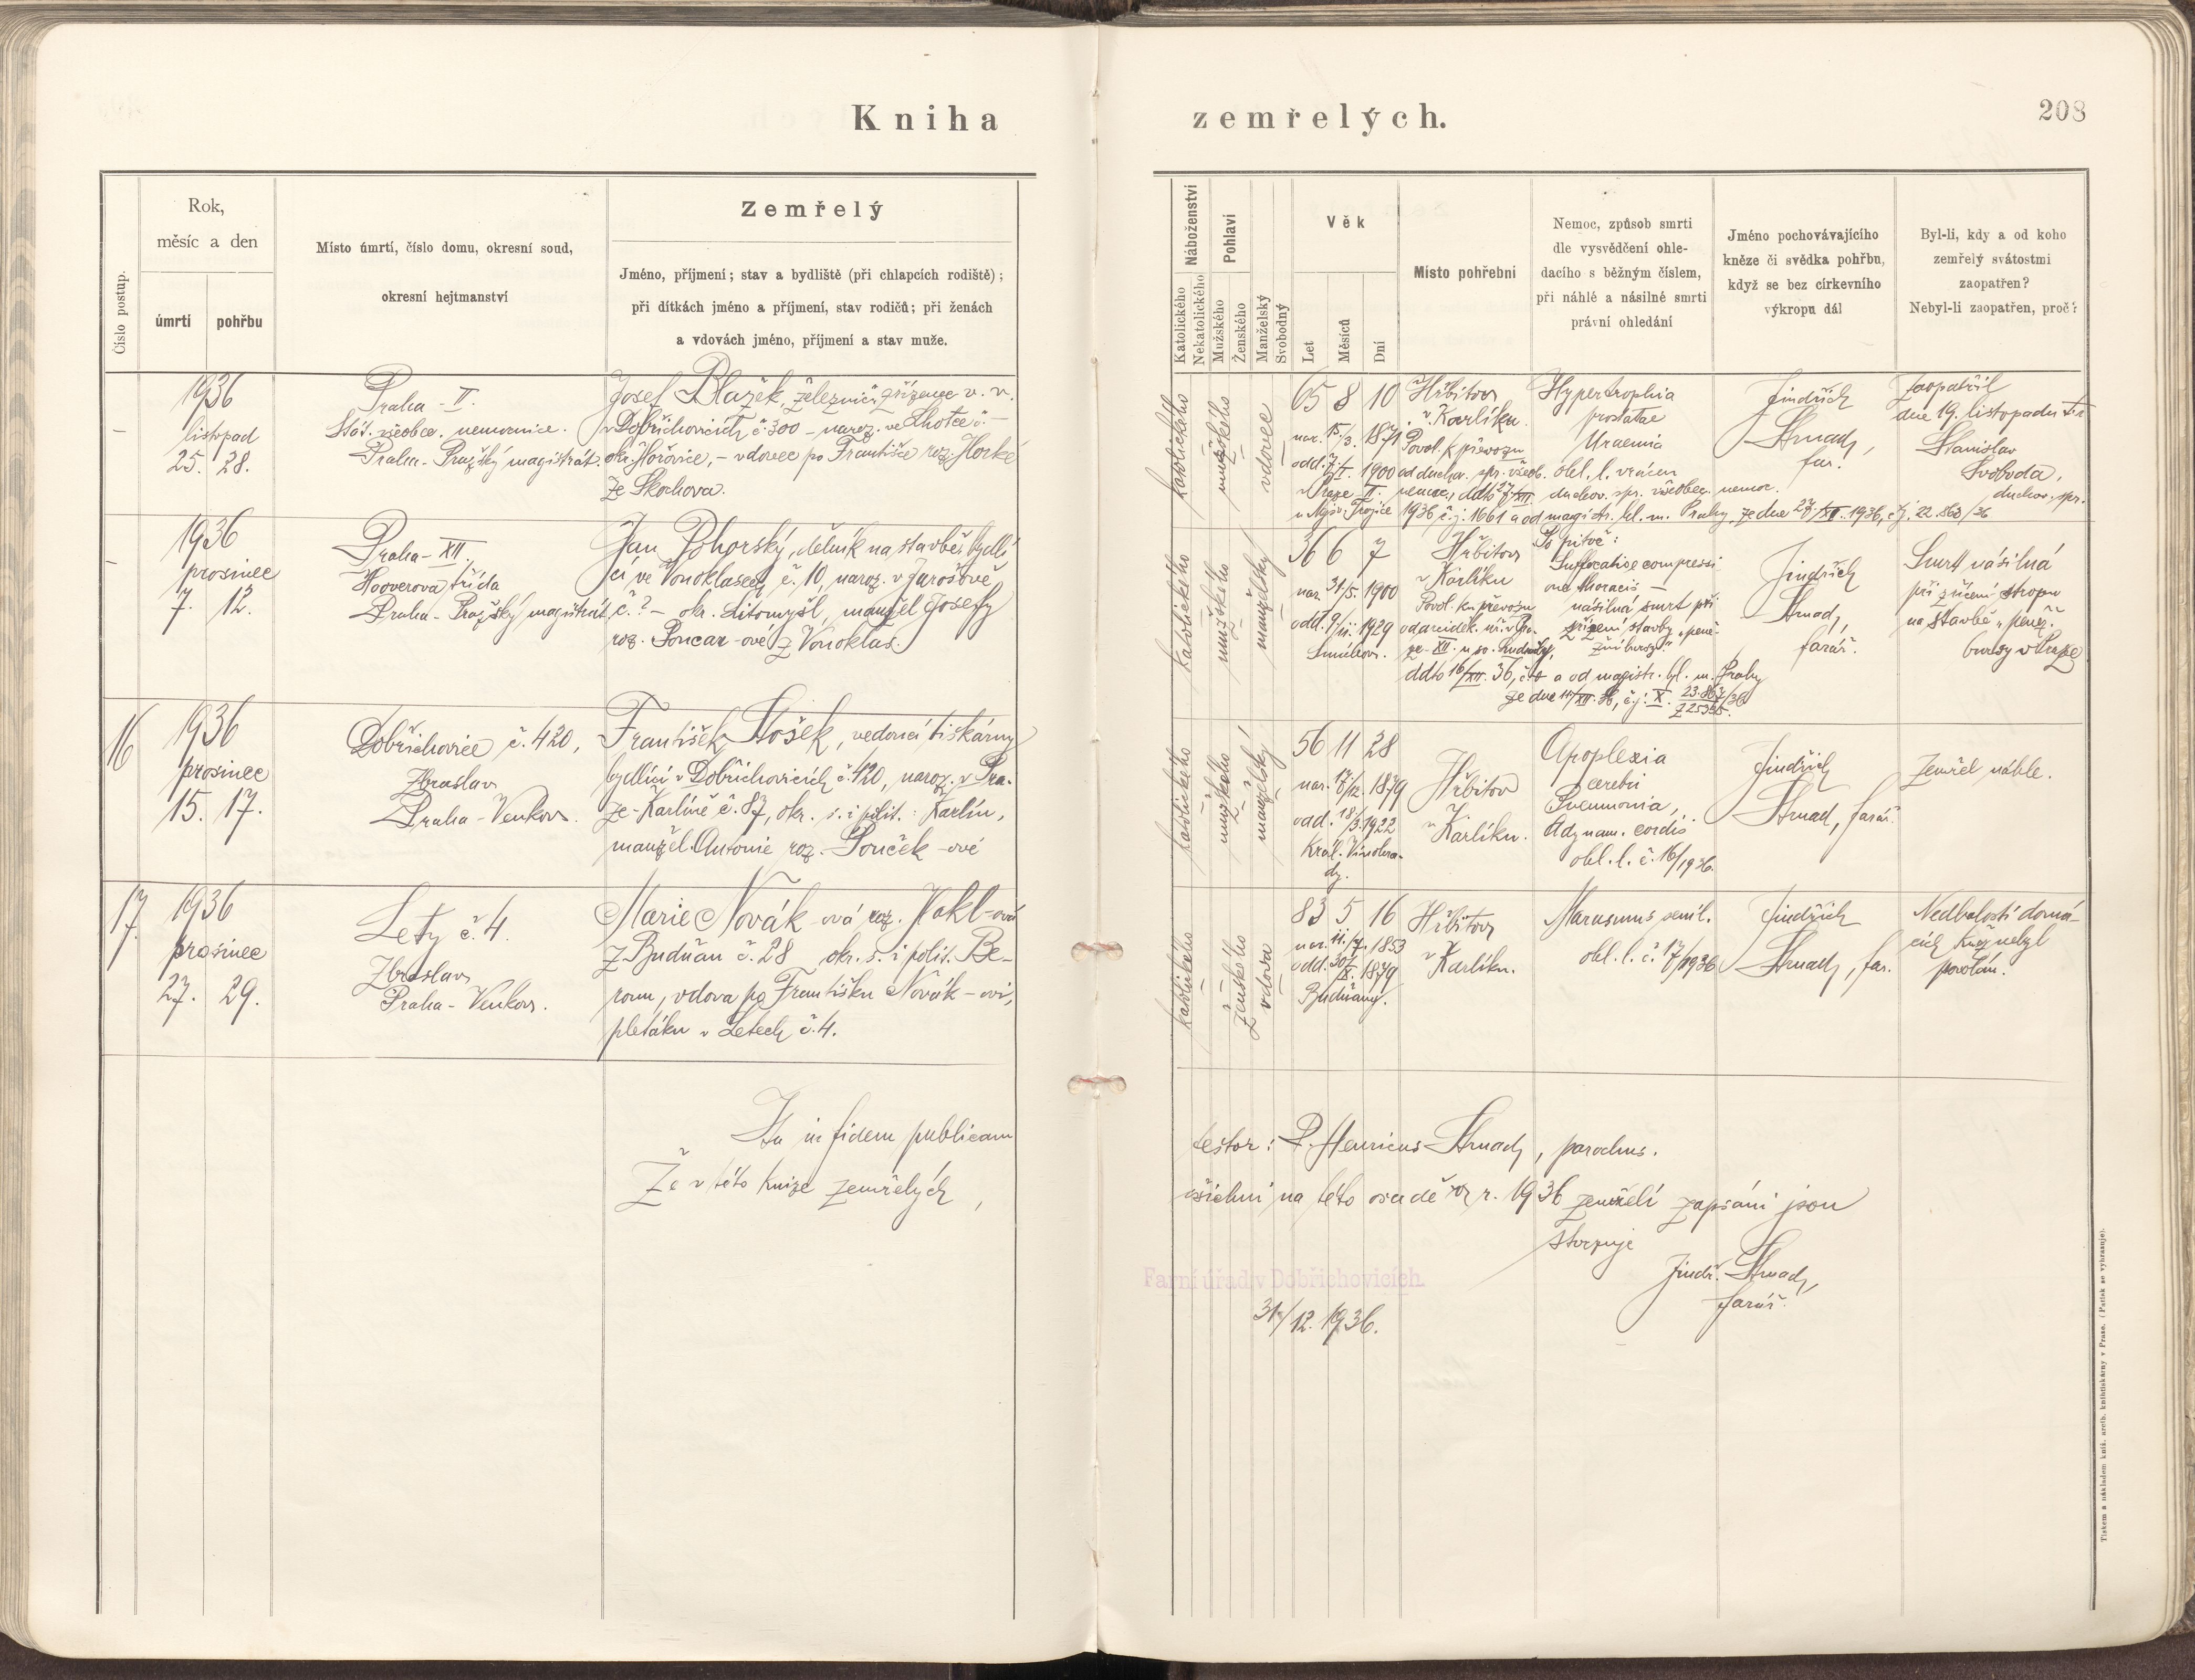 Kniha zemřelých.
208
Číslo postup.
Rok,
měsíc a den
úmrtí
pohřbu
Místo úmrtí, číslo domu, okresní soud,
okresní hejtmanství
Zemřelý
Jméno, příjmení; stav a bydliště (při chlapcích rodiště);
při dítkách jméno a příjmení, stav rodičů; při ženách
a vdovách jméno, příjmení a stav muže.
Náboženství
Katolického
Nekatolického
Pohlaví
Mužského
Ženského
Manželský
Svobodný
Věk
Let
Měsíců
Dní
Místo pohřební
Nemoc, způsob smrti
dle vysvědčení ohle-
dacího s běžným číslem,
při náhlé a násilné smrti
právní ohledání
Jméno pochovávajícího
kněze či svědka pohřbu,
když se bez církevního
výkropu dál
Byl-li, kdy a od koho
zemřelý svátostmi
zaopatřen?
Nebyl-li zaopatřen, proč?
—
1936
listopad
25. 28.
Praha - II.
Stát. všeobec. nemocnice.
Praha - Pražský magistrát.
Josef Blažek, železniční zřízenec v. v.
v Dobřichovicích č. 300 - naroz. ve Lhotce č. —
okr. Hořovice, - vdovec po Františce roz. Horké
ze Skochova.
katolického
mužského
vdovec
65 8 10
nar. 15/3. 1871
odd. 7./I. 1900
v Praze II.
u Nejsv. Trojice
Hřbitov
v Karlíku.
Povol. k převozu
od duchov. spr. všeob.
nemoc., ddto 27/XII.
1936 č. j. 1661 a od magistr. hl. m. Prahy ze dne 27./XI. 1936, čj. 22.863/36
Hypertrophia
prostatae
Uraemia
ohl. l. vrácen
duchov. spr. všeobec. nemoc.
Jindřich
Strnad,
far.
Zaopatřil
dne 19. listopadu
Stanislav
Svoboda,
duchov. spr.
—
1936
prosinec
7. 12.
Praha - XII.
Hooverova třída
Praha - Pražský magistrát
Jan Pohorský, dělník na stavbě, bydlí-
cí ve Vonoklasech č. 10, naroz. v Jarošově
č. ? - okr. Litomyšl, manžel Josefy
roz. Poncar-ové z Vonoklas.
katolického
mužského
manželský
36 6 7
nar. 31/5. 1900
odd. 9/II. 1929
Smíchov.
Hřbitov
v Karlíku
Povol. ku převozu
od arciděk. úř. v Pra-
ze - XII. u sv. Ludmily,
ddto 16/XII. 36, a od magistr. hl. m. Prahy
ze dne 11/XII. 36, č. j. X.
Po pitvě:
Suffocatio e compressi
one thoracis —
násilná smrt při
zřízení stavby „peně-
žní bursy“
Jindřich
Strnad,
farář.
Smrt násilná
při zřícení stropu
na stavbě „peněž.
bursy v Praze
16
1936
prosinec
15. 17.
Dobřichovice č. 420,
Zbraslav
Praha - Venkov.
František Stošek, vedoucí tiskárny
bydlící v Dobřichovicích č. 420, naroz. v Pra-
ze - Karlíně č. 87, okr. s. i polit. : Karlín,
manžel Antonie roz. Souček-ové
katolického
mužského
manželský
56 11 28
nar. 17/12. 1879
odd. 18/3. 1922
Král. Vinohra-
dy.
Hřbitov
v Karlíku.
Apoplexia
cerebri
Pneumonia,
Adynam. cordis
ohl. l. č. 16/1936.
Jindřich
Strnad, farář.
Zemřel náhle.
17.
1936
prosinec
27. 29.
Lety č. 4.
Zbraslav,
Praha - Venkov.
Marie Novák-ová roz. Vokl-ová
z Budňan č. 28 okr. s. i polit. Be-
roun, vdova po Františku Novák-ovi,
pletáku v Letech č. 4.
katolického
ženského
vdova
83 5 16
nar. 11./7. 1853
odd. 30/X. 1879
Budňany.
Hřbitov
v Karlíku.
Marasmus senil.
ohl. l. č. 17/1936
Jindřich
Strnad, far.
Nedbalostí domá-
cích kněz nebyl
povolán.
Ita in fidem publicam
testor: P. Henricus Strnad, parochus.
Že v této knize zemřelých,
všichni na této osadě v r. 1936 zemřelí zapsáni jsou
stvrzuje
Jindř. Strnad,
farář.
Farní úřad v Dobřichovicích.
31/12. 1936.
Tiskem a nákladem kníž. arcib. knihtiskárny v Praze. (Patisk se vyhrazuje).